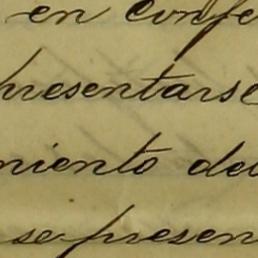 en confe
presentarse
miento de
se presen